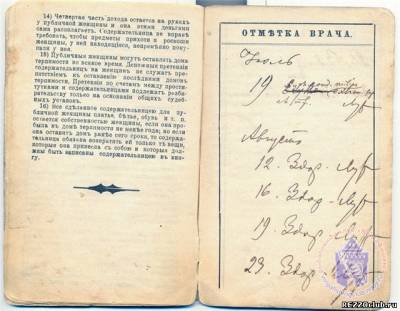 14) Четвертая часть дохода остается на руках
у публичной женщины и она этими деньгами
сама располагаетъ. Содержательница не вправѣ
требовать, чтобы предметы прихоти и роскоши
женщины, у ней находящіеся, непремѣнно поку-
пали у нея.
15) Публичныя женщины могутъ оставлять дома
терпимости во всякое время. Денежныя претензіи
содержательницъ на женщинъ не служатъ препят-
ствіемъ къ оставленію послѣдними домовъ
терпимости. Претензіи по счетамъ между прости-
тутками и содержательницами подлежатъ разби-
рательству только на основаніи общихъ судеб-
ныхъ установъ.
16) Все сдѣланное содержательницею для пу-
бличной женщины платье, бѣлье, обувь и т. п.
остается собственностью женщины, если она про-
была въ домѣ терпимости не менѣе года; но если
она оставитъ домъ ранѣе сего срока, то содержа-
тельница обязана возвратить ей только тѣ вещи,
которыя она принесла съ собою и которыя дол-
жны быть записаны содержательницею въ кни-
гу.
ОТМѢТКА ВРАЧА.
Іюль
19
Августъ
12. Здор.
16. Здор
19. Здор
23. Здор.
REZZOclub.ru